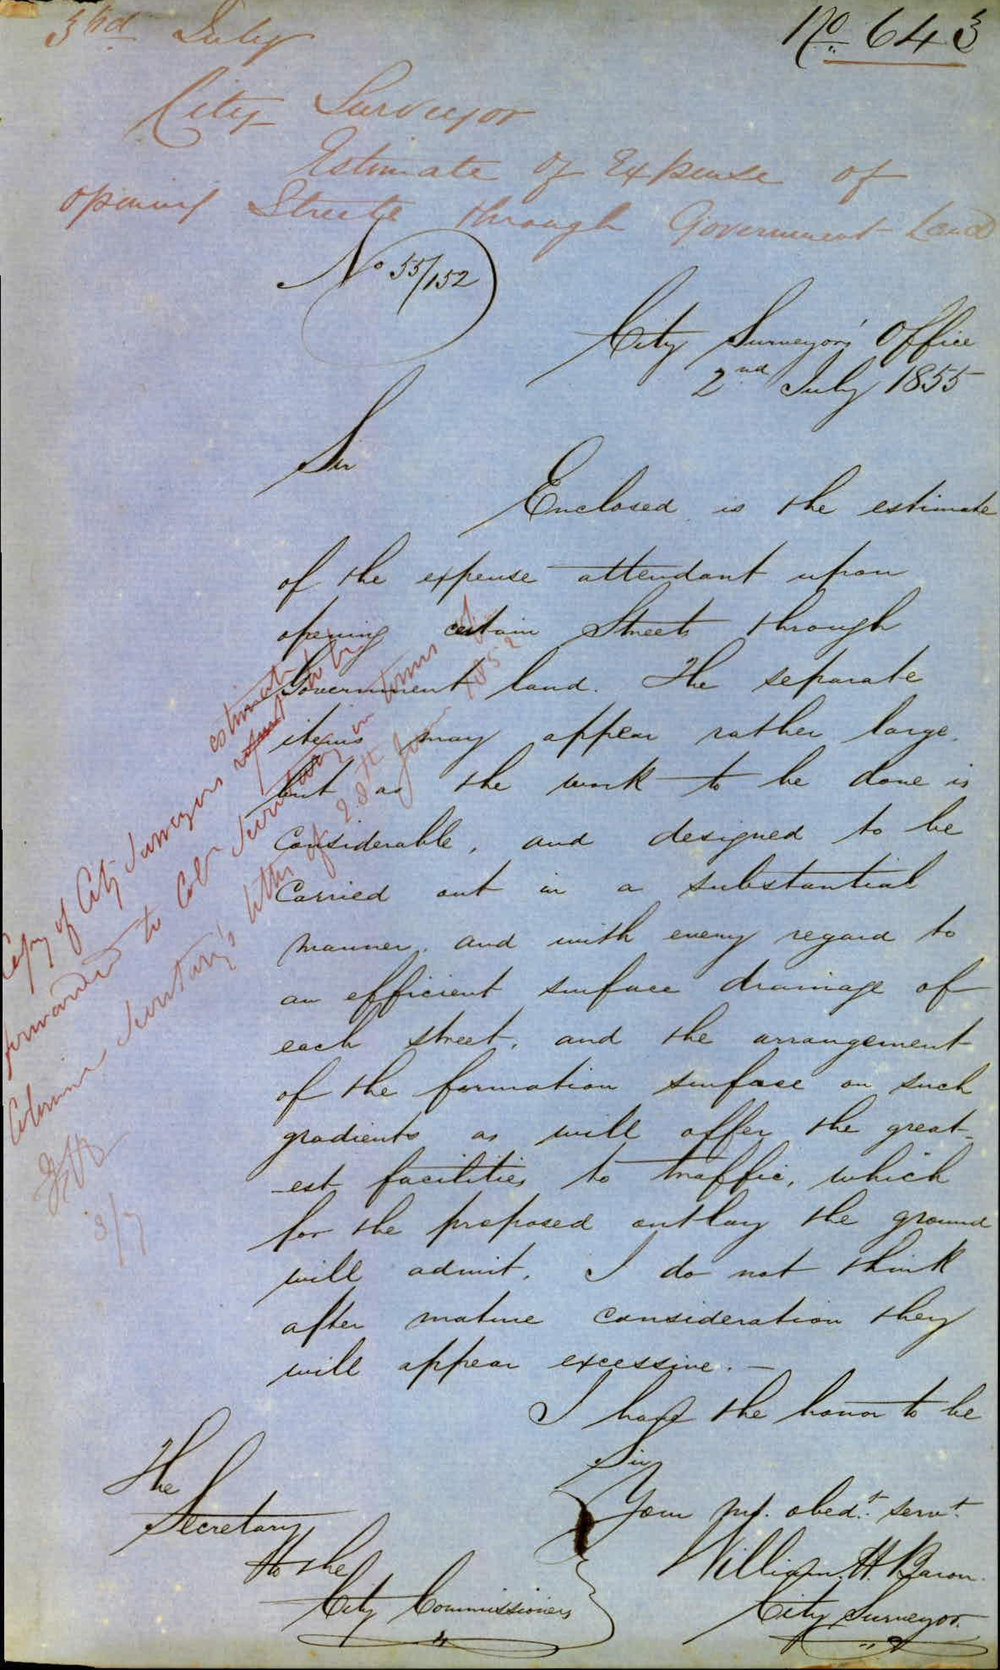 3rd July
No 643
City Surveyor
Estimate of Expense of
opening Streets through Government Land
No 55/152
City Surveyors' Office
2nd July 1855
Sir
Enclosed is the estimate
of the expense attendant upon
opening certain Streets through
Government land. The separate
items may appear rather large,
but as the work to be done is
Considerable, and designed to be
Carried out in a substantial
manner, and with every regard to
an efficient surface drainage of
each street, and the arrangement
of the formation surface on such
gradients as will offer the great-
-est facilities to traffic, which
for the proposed outlay the ground
will admit. I do not think
after mature consideration they
will appear excessive. —
I have the honor to be
Sir
Your mt. obedt. servt.
William H. Baron.
City Surveyor.
The
Secretary
to the
City Commissioners
Copy of City Surveyors estimate to be
forwarded to Coln Secretary in terms of
Colonial Secretary's letter of 28th June
3/7